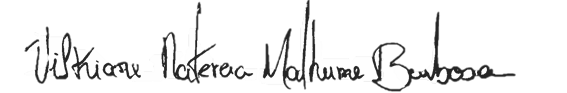 Viskiane Natercia Malhume Barbosa